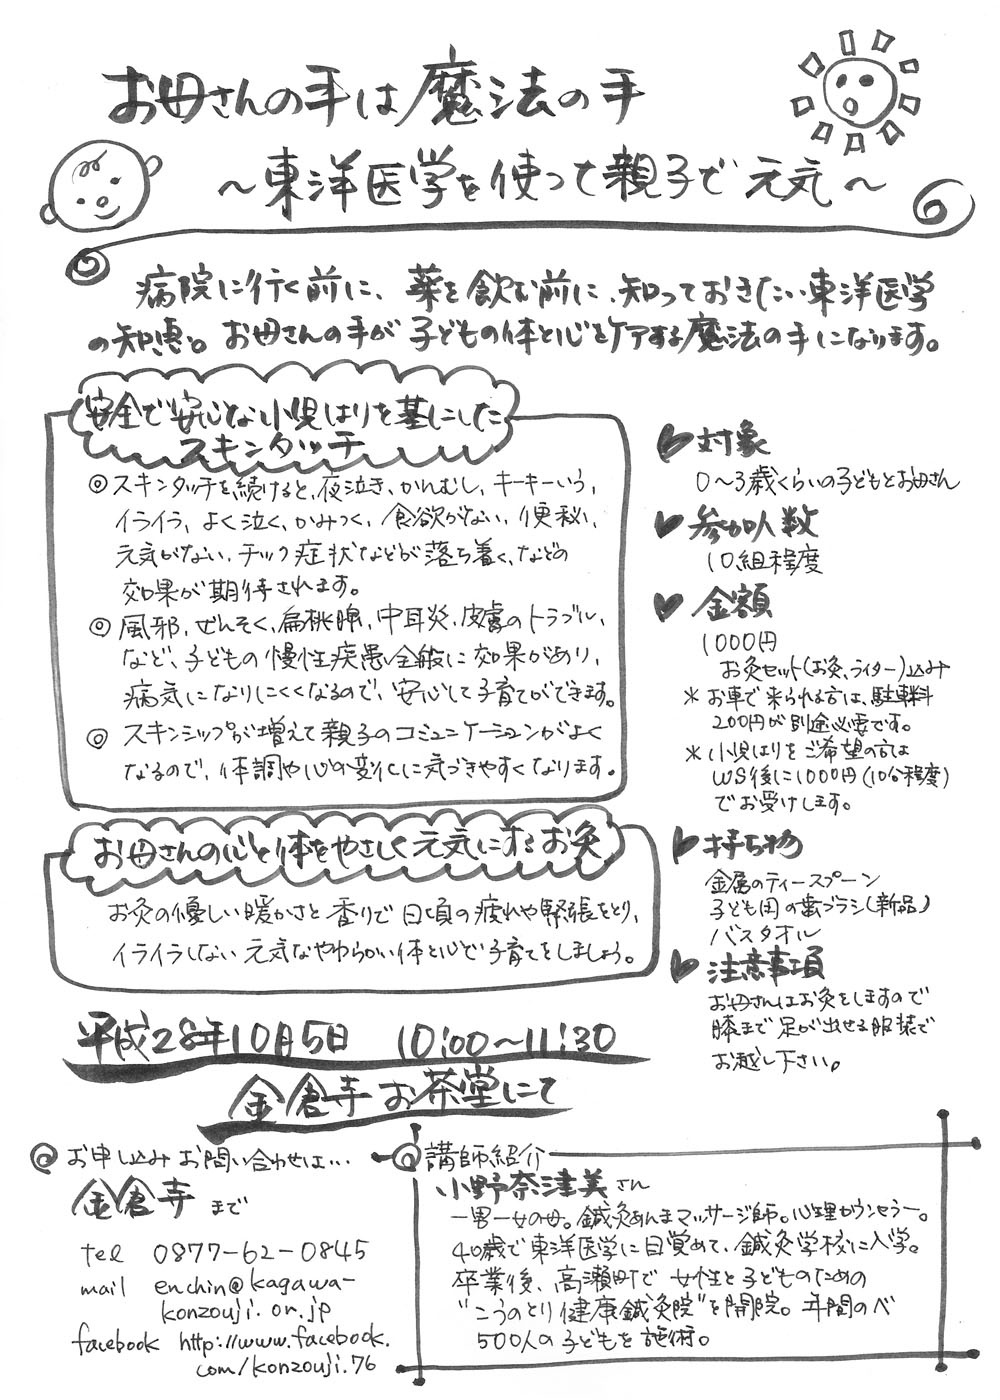 お母さんの手は魔法の手
～東洋医学を使って親子で元気～
病院に行く前に、薬を飲む前に、知っておきたい東洋医学
の知恵。お母さんの手が子どもの体と心をケアする魔法の手になります。
安全で安心な小児はりを基にした
スキンタッチ
◎スキンタッチを続けると、夜泣き、かんむし、キーキーいう、
イライラ、よく泣く、かみつく、食欲がない、便秘、
元気がない、チック症状などが落ち着く、などの
効果が期待されます。
◎風邪、ぜんそく、扁桃腺、中耳炎、皮膚のトラブル、
など、子どもの慢性疾患全般に効果があり、
病気になりにくくなるので、安心して子育てができます。
◎スキンシップが増えて親子のコミュニケーションがよく
なるので、体調や心の変化に気づきやすくなります。
お母さんの心と体をやさしく元気にするお灸
お灸の優しい暖かさと香りで日頃の疲れや緊張をとり、
イライラしない元気なやわらかい体と心で子育てをしましょう。
♥対象
0～3歳くらいの子どもとお母さん
♥参加人数
10組程度
♥金額
1000円
お灸セット(お灸、ライター)込み
＊お車で来られる方は、駐車料
200円が別途必要です。
＊小児はりをご希望の方は
WS後に1000円(10分程度)
でお受けします。
♥持ち物
金属のティースプーン
子ども用の歯ブラシ(新品)
バスタオル
♥注意事項
お母さんはお灸をしますので
膝まで足が出せる服装で
お越し下さい。
平成28年10月5日 10:00～11:30
金倉寺お茶堂にて
◎お申し込みお問い合わせは…
金倉寺まで
tel 0877-62-0845
mail enchin@kagawa-
konzouji.or.jp
facebook http://www.facebook.
com/konzouji.76
◎講師紹介
小野奈津美さん
一男一女の母。鍼灸あんまマッサージ師。心理カウンセラー。
40歳で東洋医学に目覚めて、鍼灸学校に入学。
卒業後、高瀬町で女性と子どものための
"こうのとり健康鍼灸院"を開院。年間のべ
500人の子どもを施術。